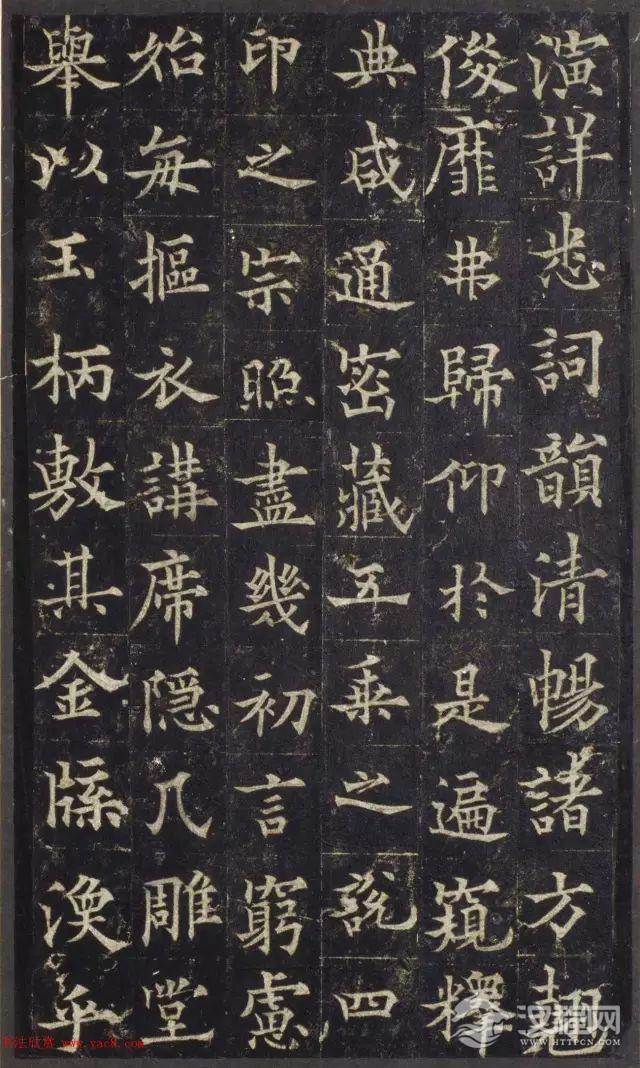 演詳悉詞韻清暢諸方翹
俊靡弗歸仰於是遍窺釋
典咸通密藏五乘之說四
印之宗照盡幾初言窮慮
始每摳衣講席隠几雕堂
舉以玉柄敷其金牒渙乎
书法欣赏 www.yac8.com
汉程网
WWW.HTTPCN.COM